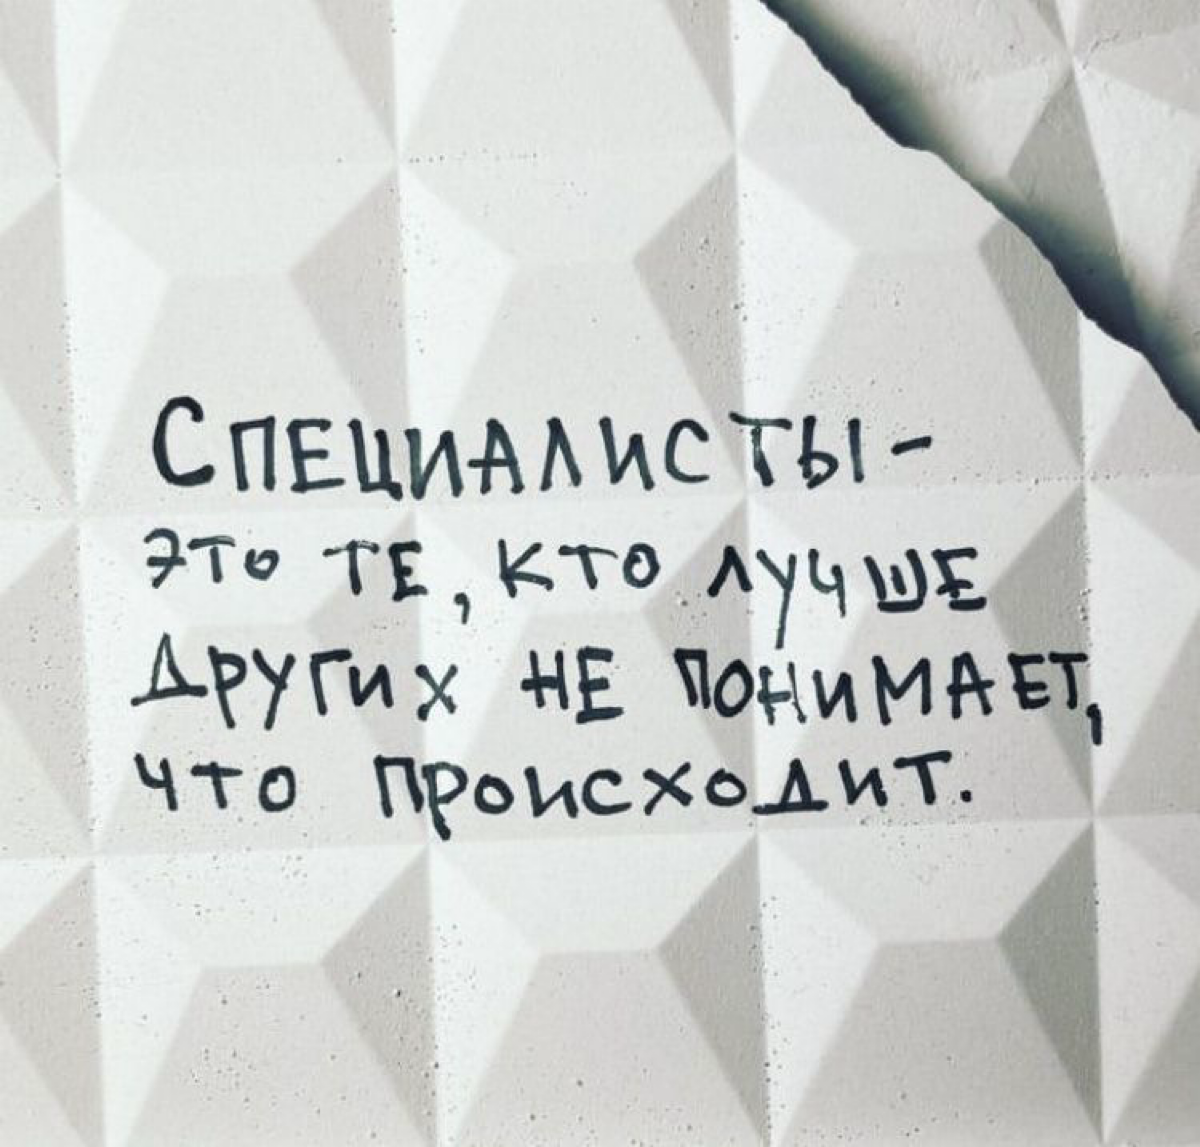 Специалисты -
это те, кто лучше
других не понимает,
что происходит.